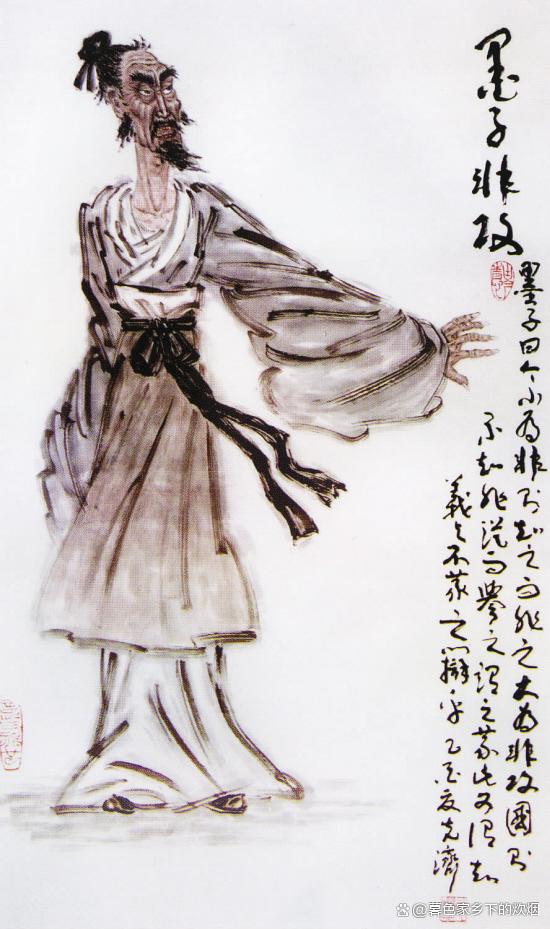 墨子非攻
墨子曰今小為非則知之而非之大為非攻國則
不知非從而譽之謂之義此可謂知
義與不義之辯乎乙酉夏克濟
@暮色家乡下的炊烟